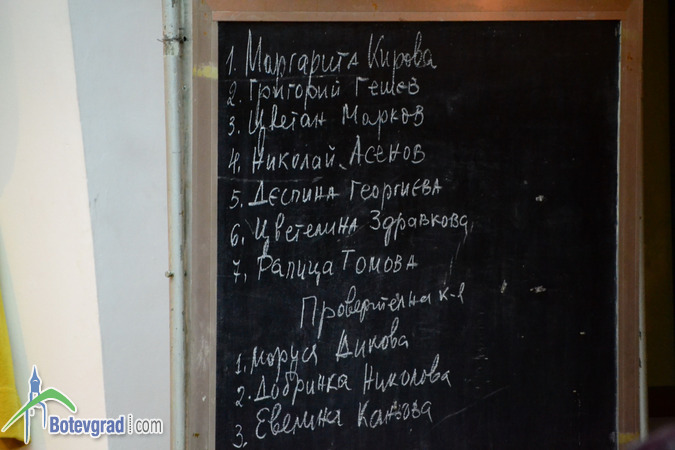 1. Маргарита Кирова
2. Григорий Гешев
3. Цветан Марков
4. Николай Асенов
5. Деспина Георгиева
6. Цветелина Здравкова
7. Рапица Томова
Проверителна к-я
1. Моруся Дикова
2. Добринка Николова
3. Евелина
Botevgrad.com